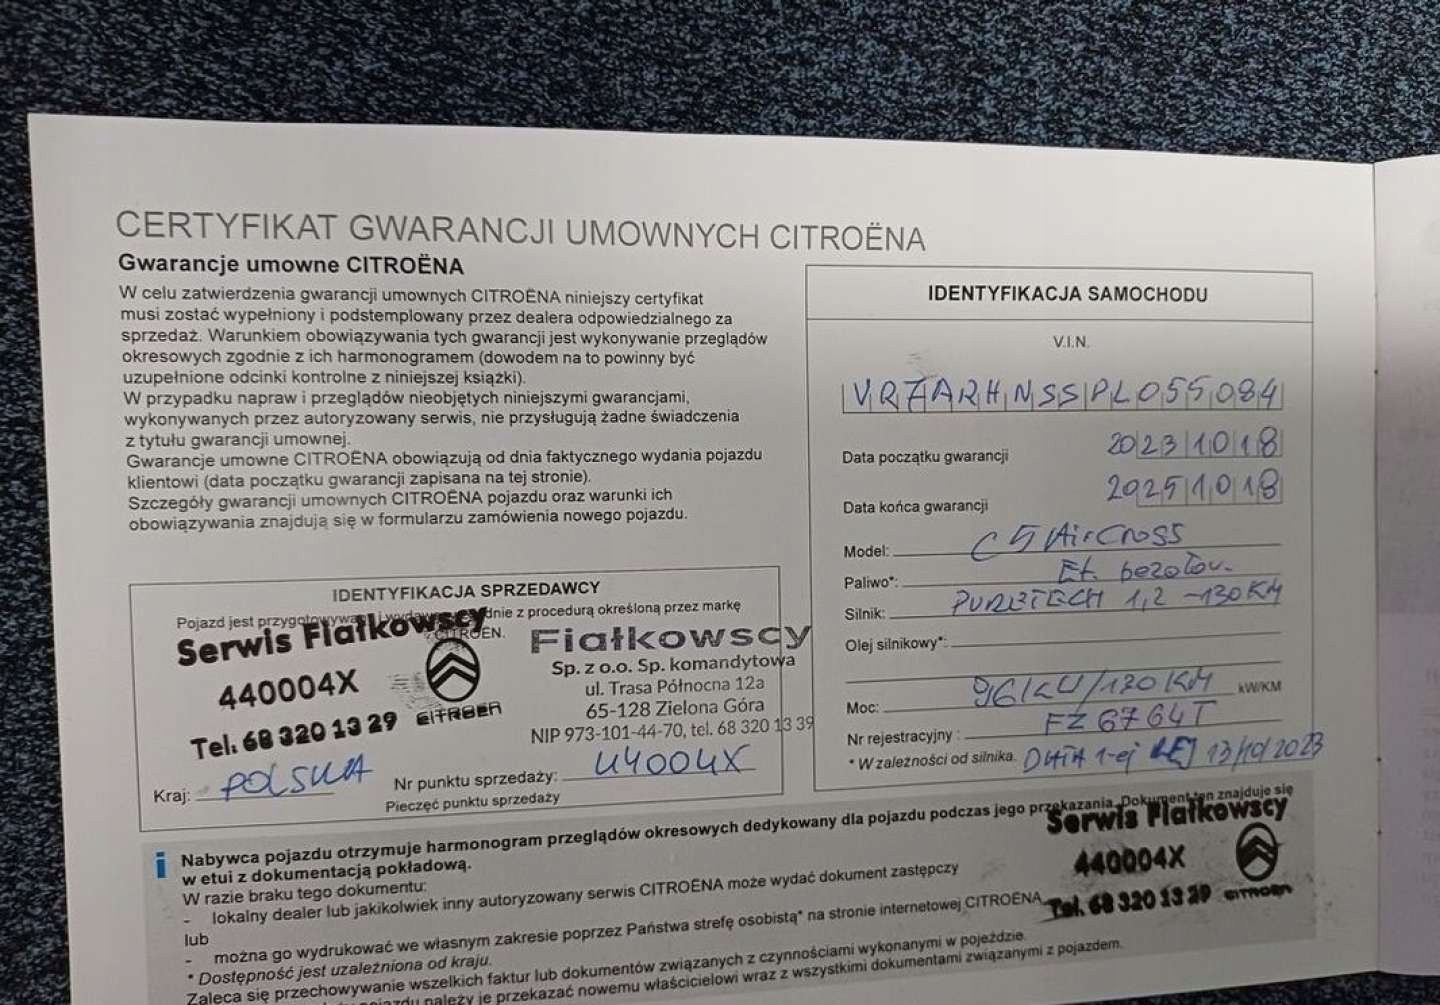 CERTYFIKAT GWARANCJI UMOWNYCH CITROËNA
Gwarancje umowne CITROËNA
W celu zatwierdzenia gwarancji umownych CITROËNA niniejszy certyfikat
musi zostać wypełniony i podstemplowany przez dealera odpowiedzialnego za
sprzedaż. Warunkiem obowiązywania tych gwarancji jest wykonywanie przeglądów
okresowych zgodnie z ich harmonogramem (dowodem na to powinny być
uzupełnione odcinki kontrolne z niniejszej książki).
W przypadku napraw i przeglądów nieobjętych niniejszymi gwarancjami,
wykonywanych przez autoryzowany serwis, nie przysługują żadne świadczenia
z tytułu gwarancji umownej.
Gwarancje umowne CITROËNA obowiązują od dnia faktycznego wydania pojazdu
klientowi (data początku gwarancji zapisana na tej stronie).
Szczegóły gwarancji umownych CITROËNA pojazdu oraz warunki ich
obowiązywania znajdują się w formularzu zamówienia nowego pojazdu.
IDENTYFIKACJA SAMOCHODU
V.I.N.
VR7ARHNSSPL055084
Data początku gwarancji 2023 10 18
Data końca gwarancji 2025 10 18
Model: C5 AirCross
Paliwo*: Et. bezołow.
Silnik: PURETECH 1,2 -130KM
Olej silnikowy*:
Moc: 96kW/130KM kW/KM
Nr rejestracyjny : FZ 6764T
* W zależności od silnika. DATA 1-ej REJ 13/10/2023
IDENTYFIKACJA SPRZEDAWCY
Pojazd jest przygotowywany i wydawany zgodnie z procedurą określoną przez markę
CITROËN.
Serwis Fiałkowscy
440004X
Tel. 68 320 13 29 CITROËN
Fiałkowscy
Sp. z o.o. Sp. komandytowa
ul. Trasa Północna 12a
65-128 Zielona Góra
NIP 973-101-44-70, tel. 68 320 13 39
Kraj: POLSKA Nr punktu sprzedaży: 44004X
Pieczęć punktu sprzedaży
Nabywca pojazdu otrzymuje harmonogram przeglądów okresowych dedykowany dla pojazdu podczas jego przekazania. Dokument ten znajduje się
w etui z dokumentacją pokładową.
W razie braku tego dokumentu:
- lokalny dealer lub jakikolwiek inny autoryzowany serwis CITROËNA może wydać dokument zastępczy
lub
- można go wydrukować we własnym zakresie poprzez Państwa strefę osobistą* na stronie internetowej CITROËNA.
* Dostępność jest uzależniona od kraju.
Zaleca się przechowywanie wszelkich faktur lub dokumentów związanych z czynnościami wykonanymi w pojeździe.
należy je przekazać nowemu właścicielowi wraz z wszystkimi dokumentami związanymi z pojazdem.
Serwis Fiałkowscy
440004X
Tel. 68 320 13 29 CITROËN